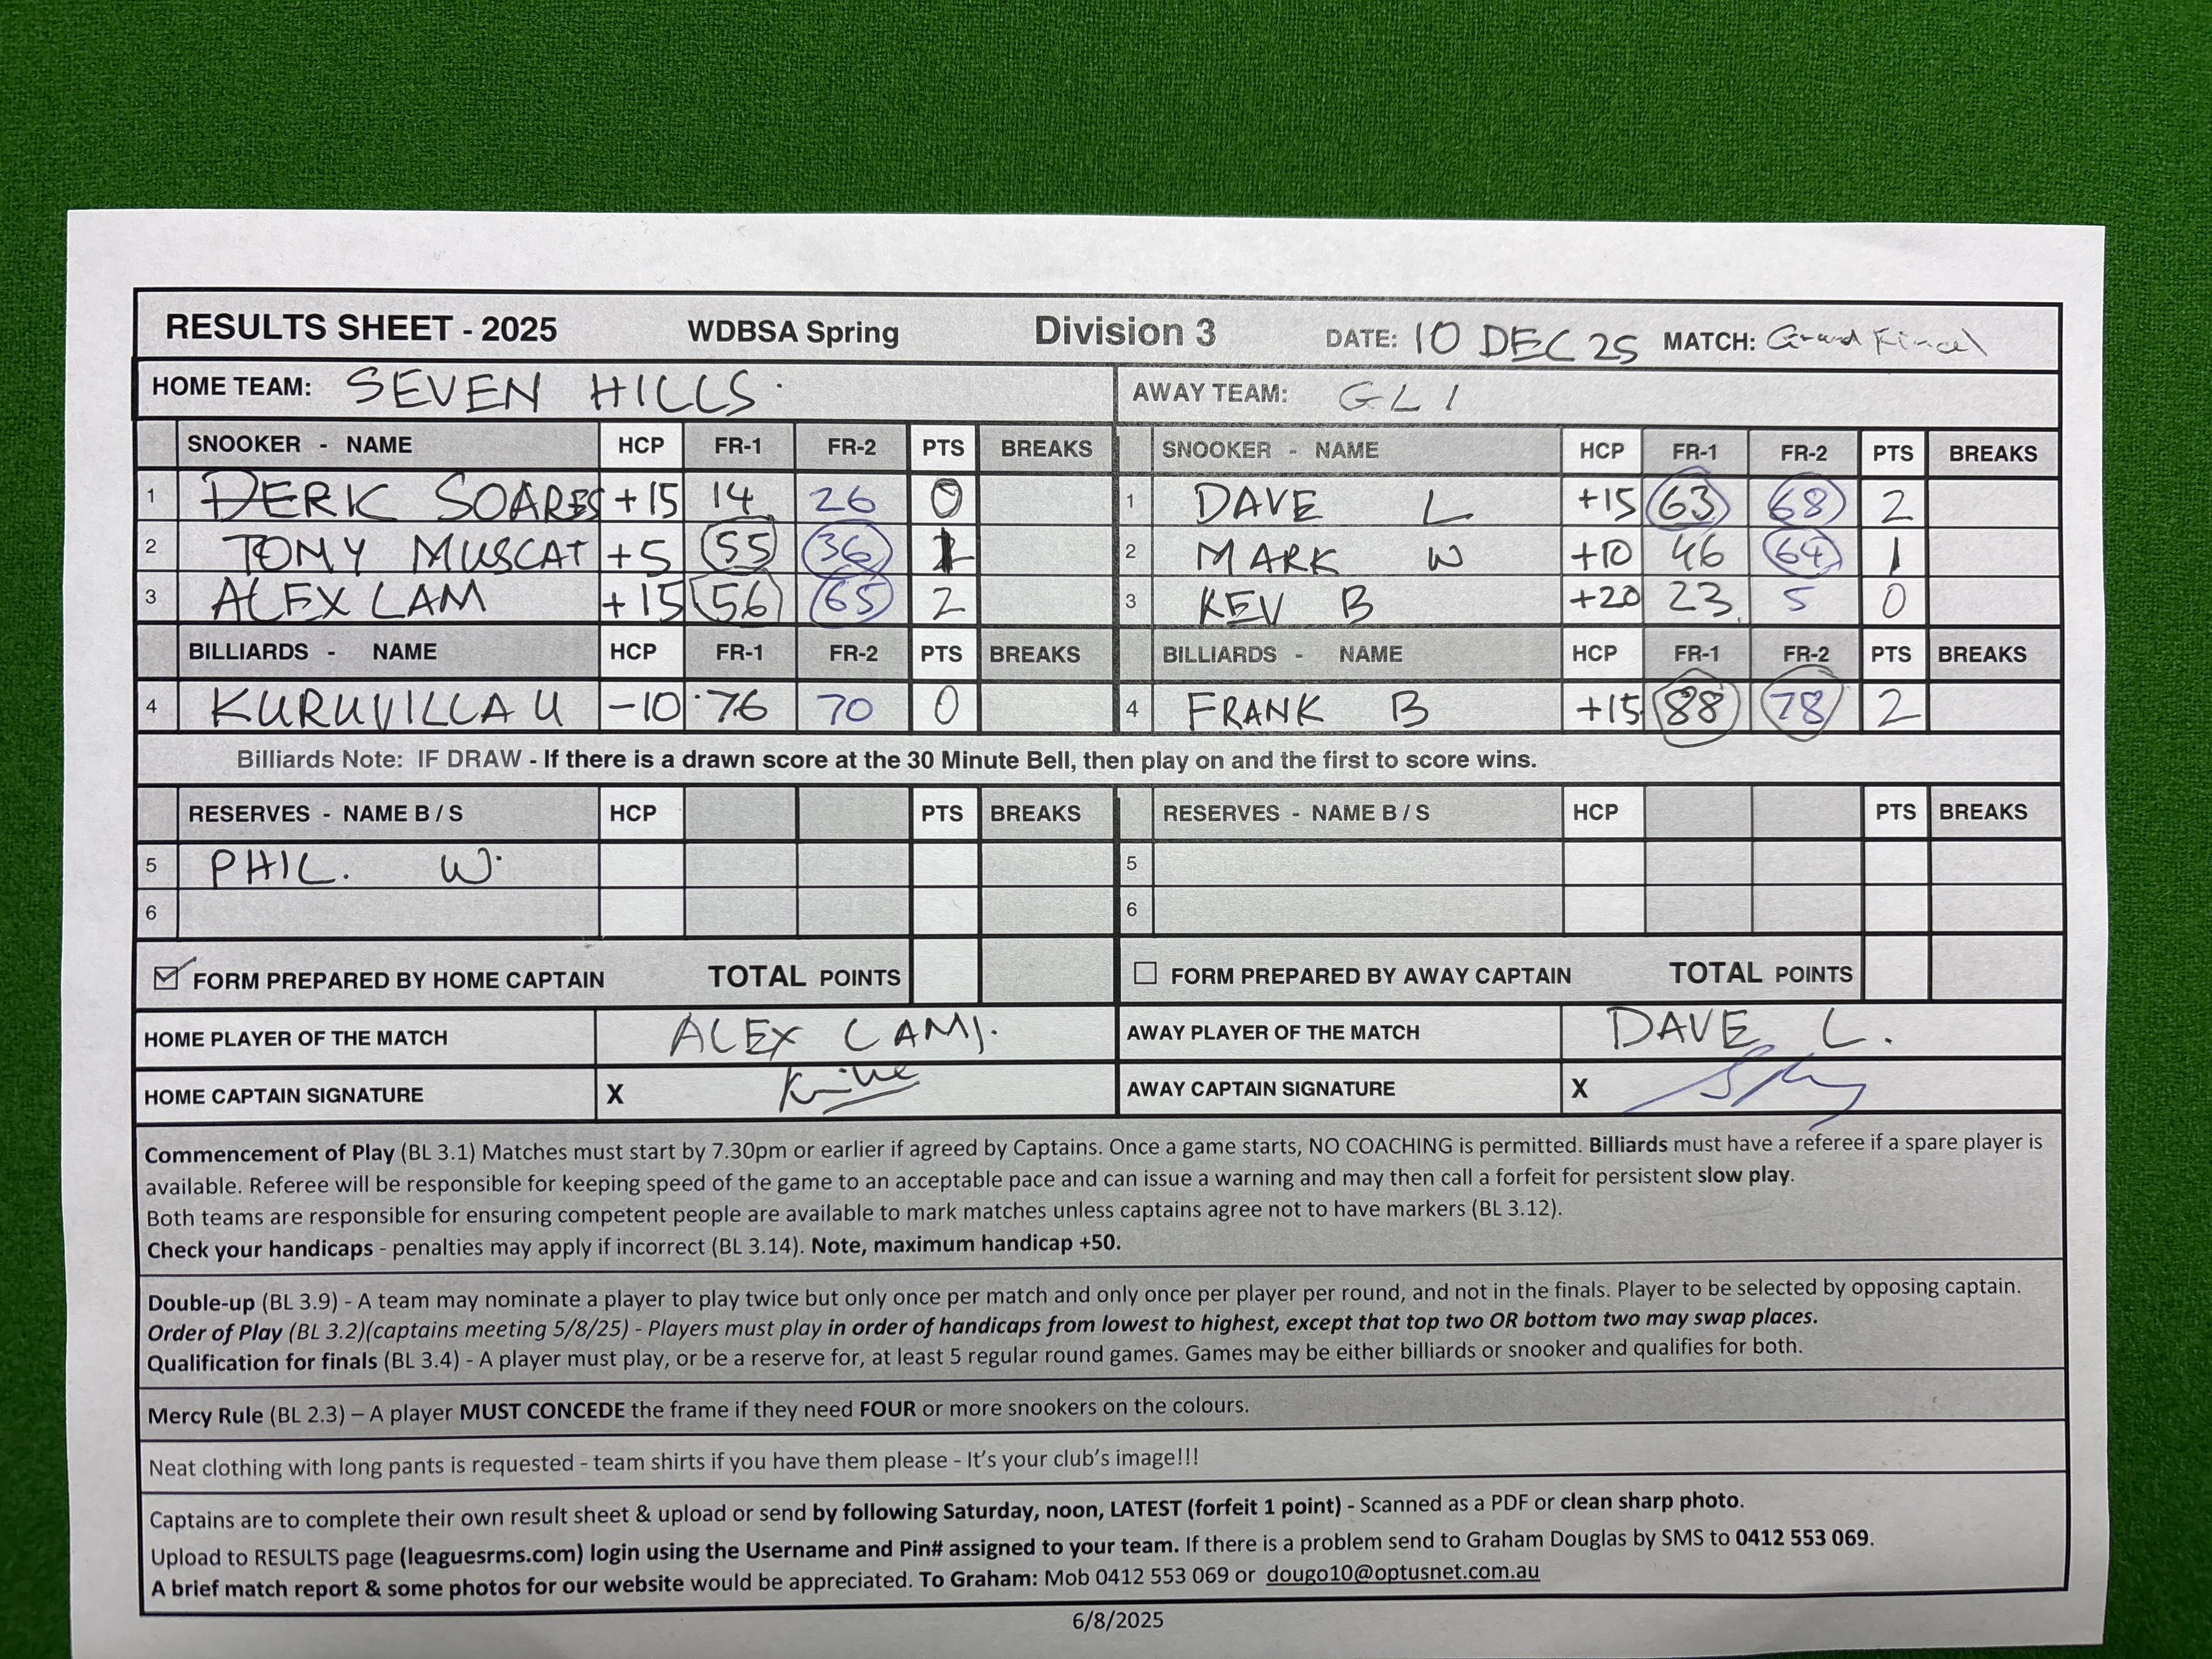 RESULTS SHEET - 2025 WDBSA Spring Division 3 DATE: 10 DEC 25 MATCH: Grand Final
HOME TEAM: SEVEN HILLS. AWAY TEAM: GL1
SNOOKER - NAME HCP FR-1 FR-2 PTS BREAKS SNOOKER - NAME HCP FR-1 FR-2 PTS BREAKS
1 DERK SOARES +15 14 26 0 1 DAVE L +15 63 68 2
2 TOMY MUSCAT +5 55 36 2 MARK W +10 46 64 1
3 ALEX LAM +15 56 65 2 3 KEV B +20 23 5 0
BILLIARDS - NAME HCP FR-1 FR-2 PTS BREAKS BILLIARDS - NAME HCP FR-1 FR-2 PTS BREAKS
4 KURUVILLA U -10 76 70 0 4 FRANK B +15 88 78 2
Billiards Note: IF DRAW - If there is a drawn score at the 30 Minute Bell, then play on and the first to score wins.
RESERVES - NAME B / S HCP PTS BREAKS RESERVES - NAME B / S HCP PTS BREAKS
5 PHIL. W. 5
6 6
FORM PREPARED BY HOME CAPTAIN TOTAL POINTS FORM PREPARED BY AWAY CAPTAIN TOTAL POINTS
HOME PLAYER OF THE MATCH ALEX LAM. AWAY PLAYER OF THE MATCH DAVE L.
HOME CAPTAIN SIGNATURE X AWAY CAPTAIN SIGNATURE X
Commencement of Play (BL 3.1) Matches must start by 7.30pm or earlier if agreed by Captains. Once a game starts, NO COACHING is permitted. Billiards must have a referee if a spare player is
available. Referee will be responsible for keeping speed of the game to an acceptable pace and can issue a warning and may then call a forfeit for persistent slow play.
Both teams are responsible for ensuring competent people are available to mark matches unless captains agree not to have markers (BL 3.12).
Check your handicaps - penalties may apply if incorrect (BL 3.14). Note, maximum handicap +50.
Double-up (BL 3.9) - A team may nominate a player to play twice but only once per match and only once per player per round, and not in the finals. Player to be selected by opposing captain.
Order of Play (BL 3.2)(captains meeting 5/8/25) - Players must play in order of handicaps from lowest to highest, except that top two OR bottom two may swap places.
Qualification for finals (BL 3.4) - A player must play, or be a reserve for, at least 5 regular round games. Games may be either billiards or snooker and qualifies for both.
Mercy Rule (BL 2.3) – A player MUST CONCEDE the frame if they need FOUR or more snookers on the colours.
Neat clothing with long pants is requested - team shirts if you have them please - It's your club's image!!!
Captains are to complete their own result sheet & upload or send by following Saturday, noon, LATEST (forfeit 1 point) - Scanned as a PDF or clean sharp photo.
Upload to RESULTS page (leaguesrms.com) login using the Username and Pin# assigned to your team. If there is a problem send to Graham Douglas by SMS to 0412 553 069.
A brief match report & some photos for our website would be appreciated. To Graham: Mob 0412 553 069 or dougo10@optusnet.com.au
6/8/2025